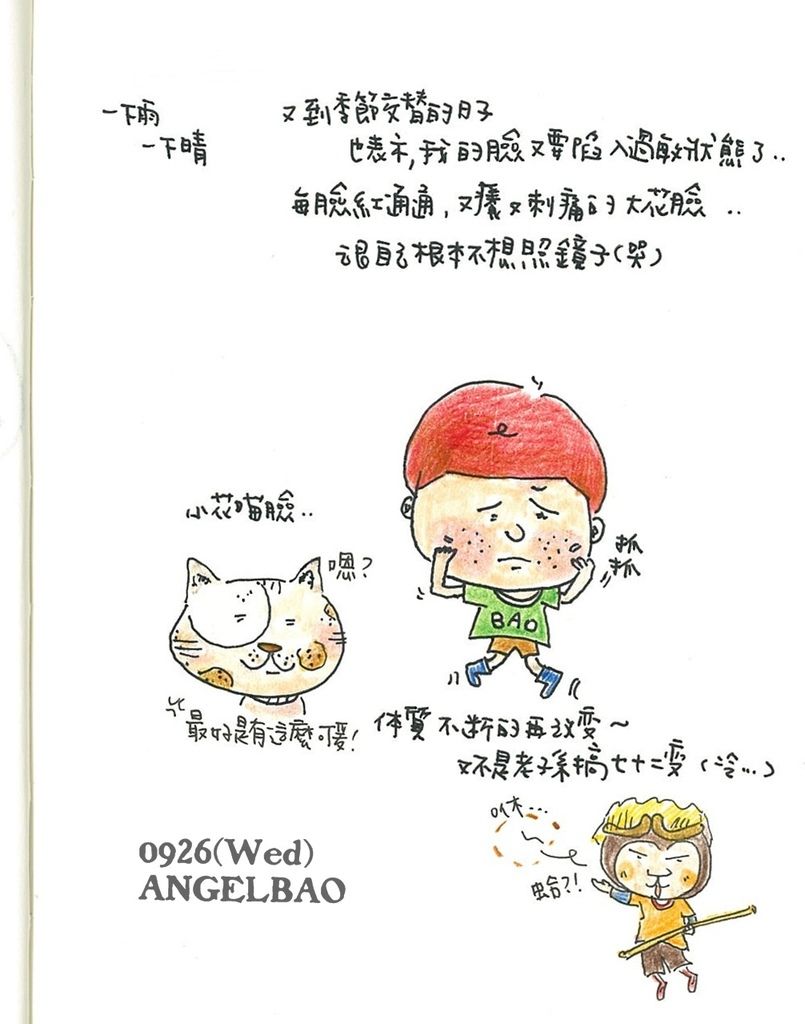 一下雨
一下晴
又到季節交替的日子
也表示,我的臉又要陷入過敏狀態了..
每臉紅通通,又癢又刺痛的大花臉..
讓自己根本不想照鏡子(哭)
小花喵臉..
嗯?
抓
抓
BAO
最好是有這麼可愛!
体質不斷的再改變~
又不是老孫搞七十二變(冷...)
咻...
蛤?!
0926(Wed)
ANGELBAO